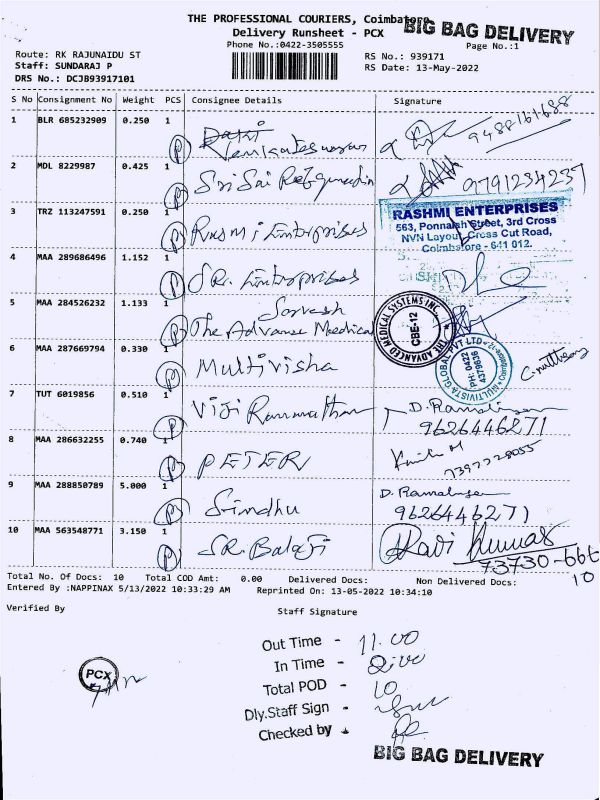 THE PROFESSIONAL COURIERS, Coimbatore
BIG BAG DELIVERY
Delivery Runsheet - PCX
Phone No.:0422-3505555
Page No.:1
Route: RK RAJUNAIDU ST
Staff: SUNDARAJ P
DRS No.: DCJB93917101
RS No.: 939171
RS Date: 13-May-2022
S No Consignment No Weight PCS Consignee Details Signature
1 BLR 685232909 0.250 1 Venkateswaran 9488161688
2 MDL 8229987 0.425 1 Sri Sai 9791234237
3 TRZ 113247591 0.250 1 Rasmi Enterprises
RASHMI ENTERPRISES
563, Ponnaiah Street, 3rd Cross
NVN Layout, Cross Cut Road,
Coimbatore - 641 012.
4 MAA 289686496 1.152 1 SR. Enterprises
5 MAA 284526232 1.133 1 Sarvesh
The Advance Medical
THE ADVANCED MEDICAL SYSTEMS INC.
CBE-12
6 MAA 287669794 0.330 1 Multivisha
MULTIVISTA GLOBAL PVT LTD
PH: 0422
4379636
7 TUT 6019856 0.510 1 Viji Rammathan D. Ramalingam
9626446271
8 MAA 286632255 0.740 1 PETER
7397728055
9 MAA 288850789 5.000 1 Sindhu D. Ramalingam
9626446271
10 MAA 563548771 3.150 1 SR. Balaji Ravi Kumar
73730-666
10
Total No. Of Docs: 10 Total COD Amt: 0.00 Delivered Docs: Non Delivered Docs:
Entered By :NAPPINAX 5/13/2022 10:33:29 AM Reprinted On: 13-05-2022 10:34:10
Verified By Staff Signature
Out Time - 11.00
In Time -
Total POD - 10
Dly.Staff Sign -
Checked by -
PCX
BIG BAG DELIVERY